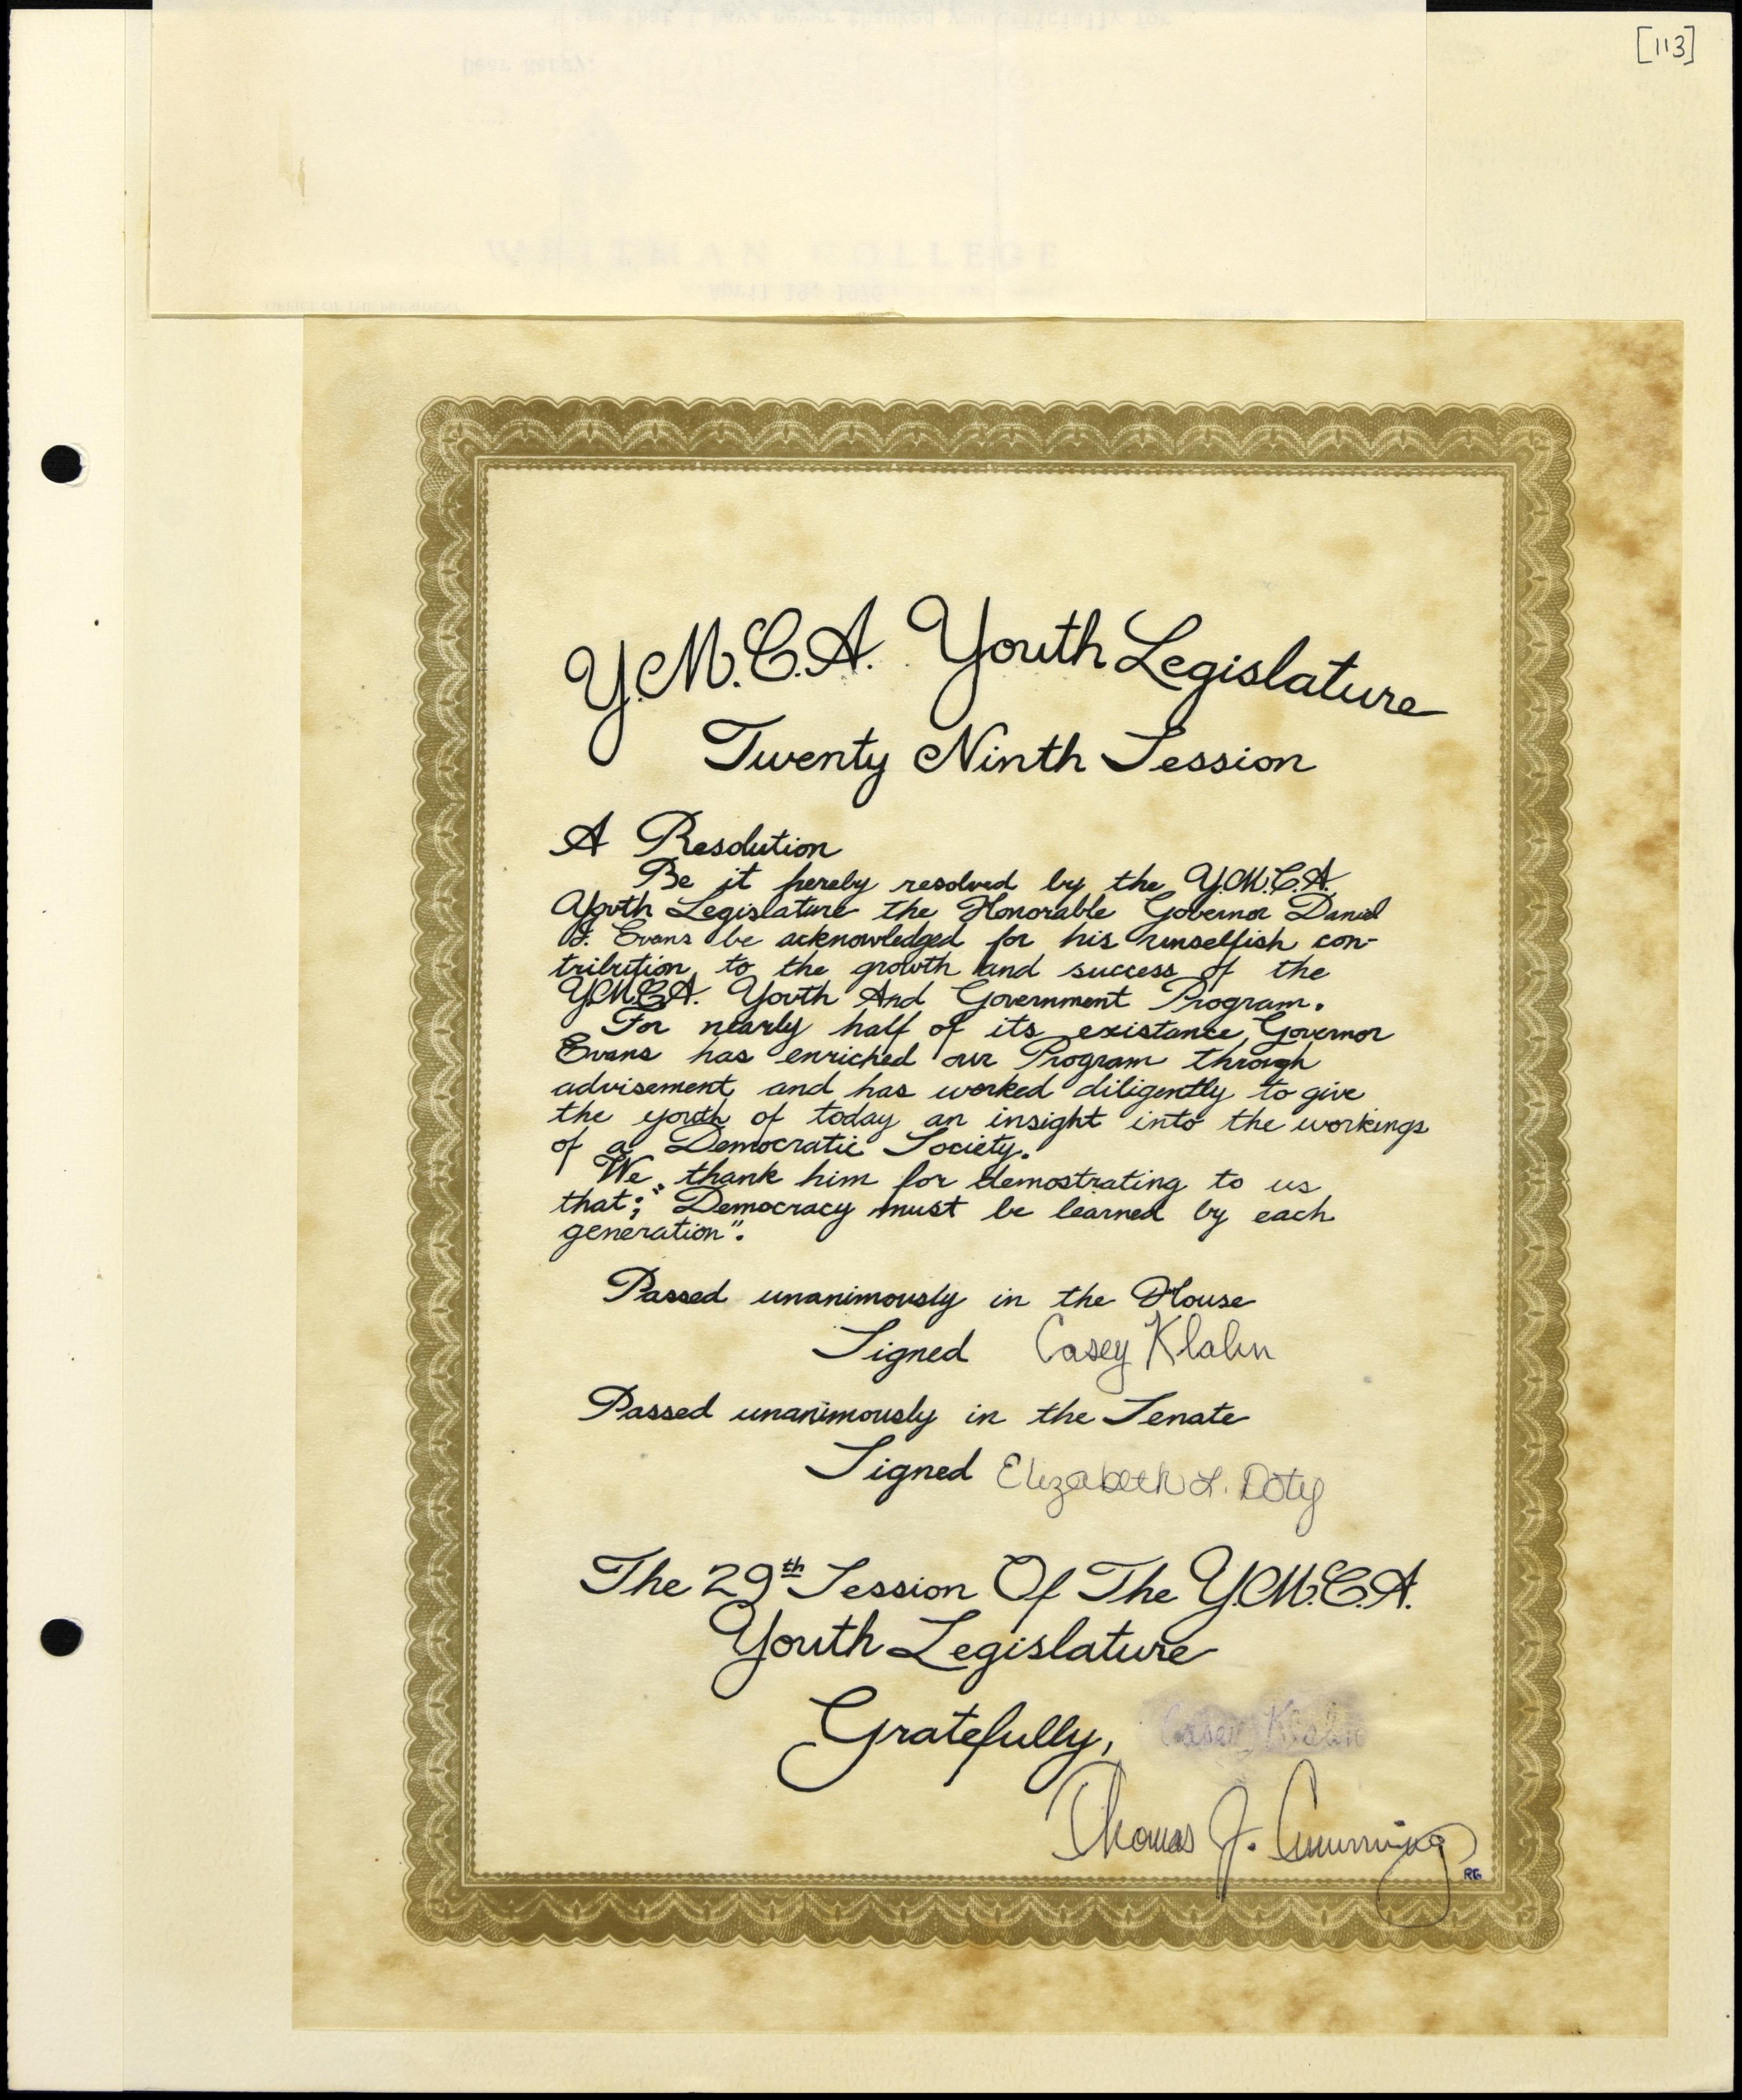 [113]
Dear Nancy:
WHITMAN COLLEGE
April 19, 1976
Y.M.C.A. Youth Legislature
Twenty Ninth Session
A Resolution
Be it hereby resolved by the Y.M.C.A.
Youth Legislature the Honorable Governor Daniel
J. Evans be acknowledged for his unselfish con-
tribution to the growth and success of the
Y.M.C.A. Youth And Government Program.
For nearly half of its existance Governor
Evans has enriched our Program through
advisement and has worked diligently to give
the youth of today an insight into the workings
of a Democratic Society.
We thank him for demostrating to us
that; "Democracy must be learned by each
generation".
Passed unanimously in the House
Signed Casey Klahn
Passed unanimously in the Senate
Signed Elizabeth L. Doty
The 29th Session Of The Y.M.C.A.
Youth Legislature
Gratefully, Casey Klahn
Thomas J. Cumming
RG